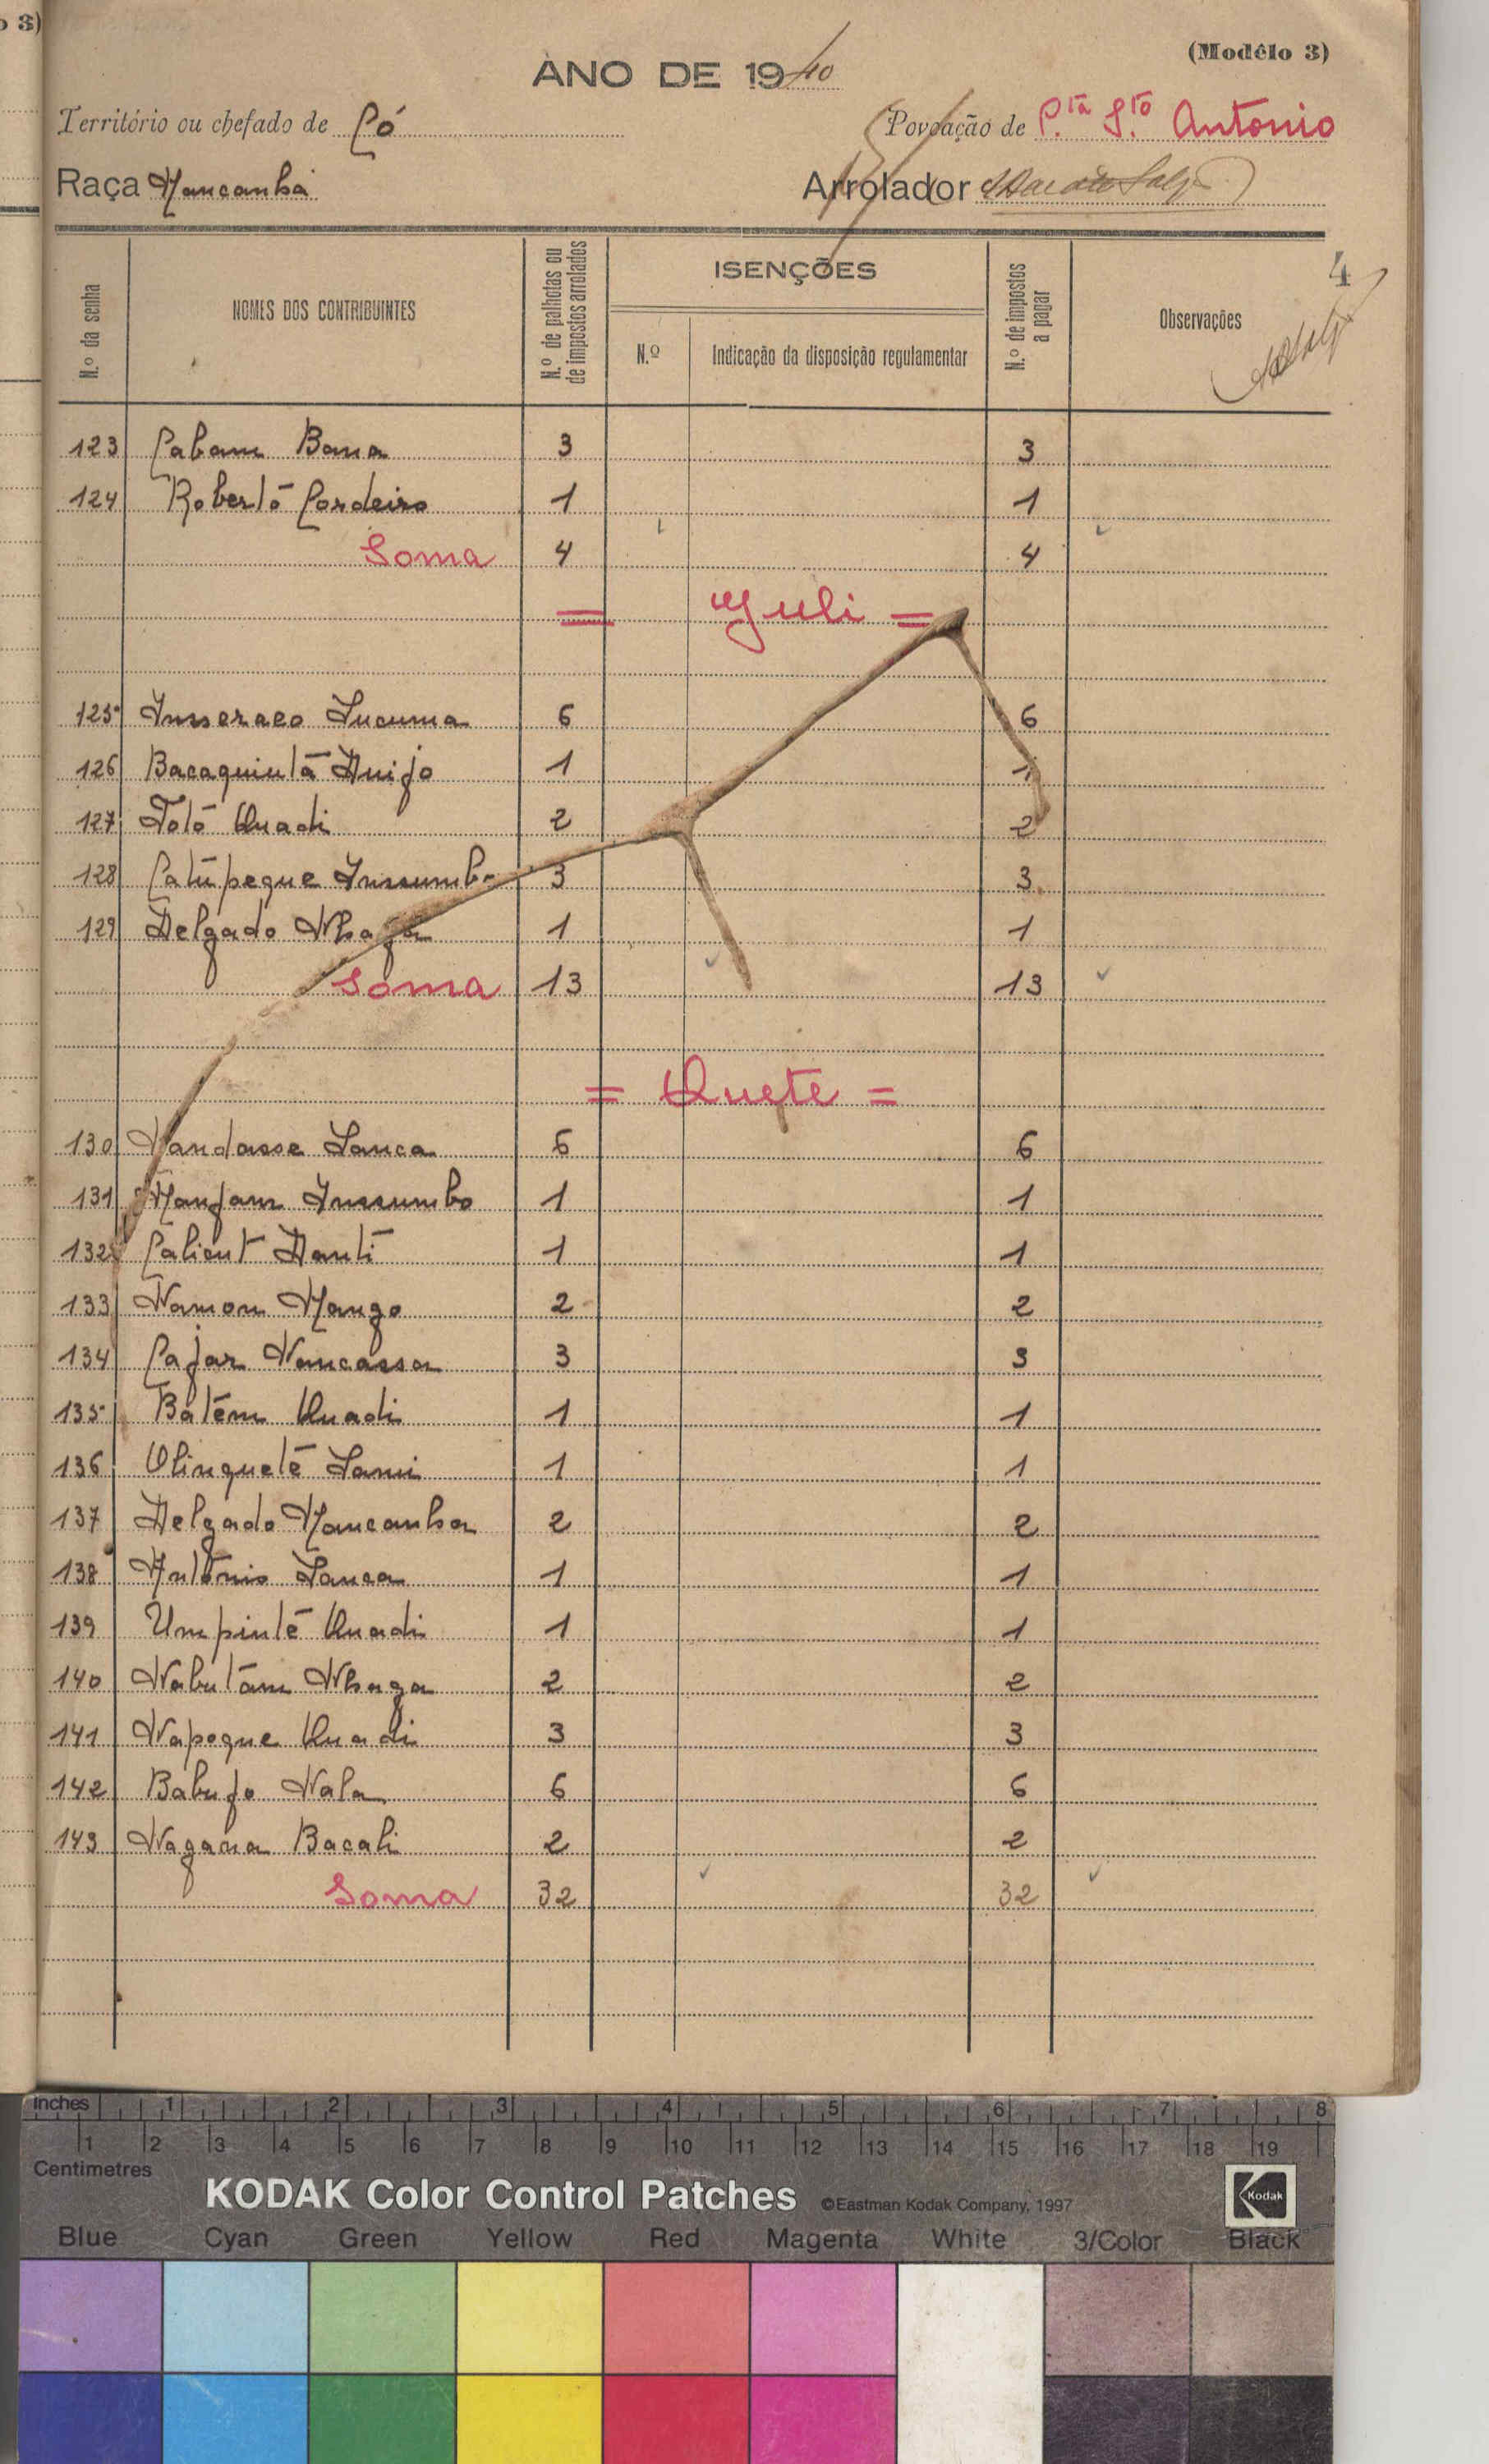 o 3)
(Modêlo 3)
ANO DE 1940
Território ou chefado de Có
Povoação de P.ta S.to Antonio
Raça Mancanha
Arrolador
4
N.º da senha
NOMES DOS CONTRIBUINTES
N.º de palhotas ou de impostos arrolados
ISENÇÕES
N.º
Indicação da disposição regulamentar
N.º de impostos a pagar
Observações
123 Cabam Bana 3 3
124 Robertó Cordeiro 1 1
Soma 4 4
= Yuli =
125 Insseraco Lucuma 6 6
126 Bacaquintã Duifo 1 1
127 Totó Quadi 2 2
128 Catúpeque Inssumbo 3 3
129 Delgado Nhaga 1 1
Soma 13 13
= Quete =
130 Nandasse Lanca 6 6
131 Manfam Inssumbo 1 1
132 Calient Danti 1 1
133 Namon Mango 2 2
134 Cajar Nancassa 3 3
135 Batém Quadi 1 1
136 Olinqueté Lami 1 1
137 Delgado Mancanha 2 2
138 António Lanca 1 1
139 Umpinté Quadi 1 1
140 Nabutam Nhaga 2 2
141 Napeque Quadi 3 3
142 Babufo Nala 6 6
143 Nagana Bacali 2 2
Soma 32 32
Inches 1 2 3 4 5 6 7 8
1 2 3 4 5 6 7 8 9 10 11 12 13 14 15 16 17 18 19
Centimetres
KODAK Color Control Patches ©Eastman Kodak Company, 1997 Kodak
Blue Cyan Green Yellow Red Magenta White 3/Color Black